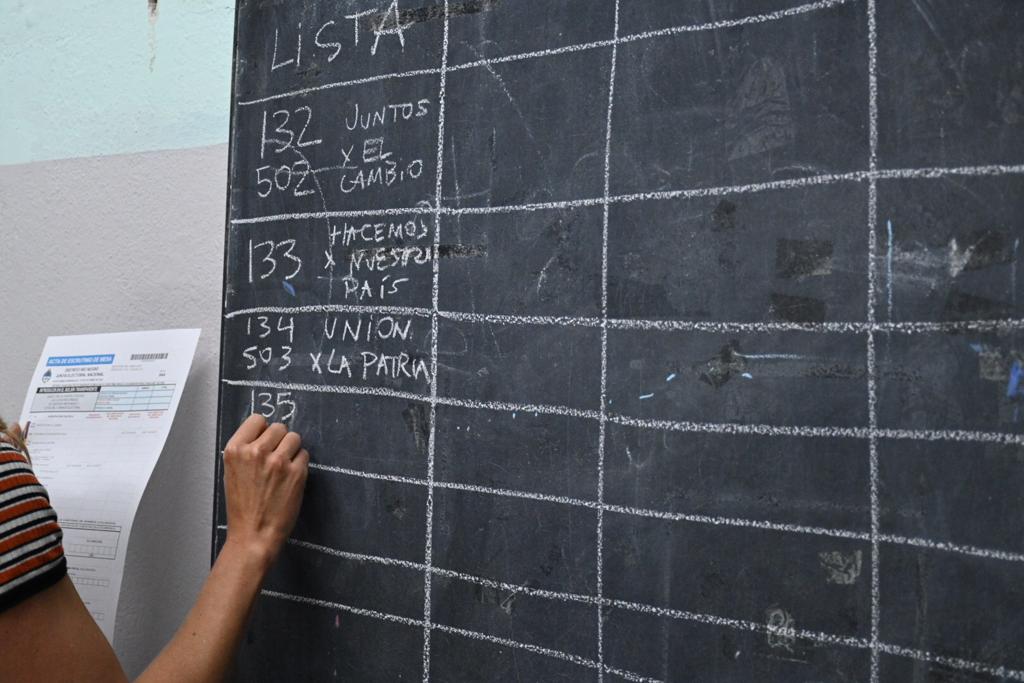 LISTA
132 JUNTOS
502 X EL
CAMBIO
133 HACEMOS
X NUESTRO
PAÍS
134 UNION
503 X LA PATRIA
135
ACTA DE ESCRUTINIO DE MESA
JUNTA ELECTORAL NACIONAL